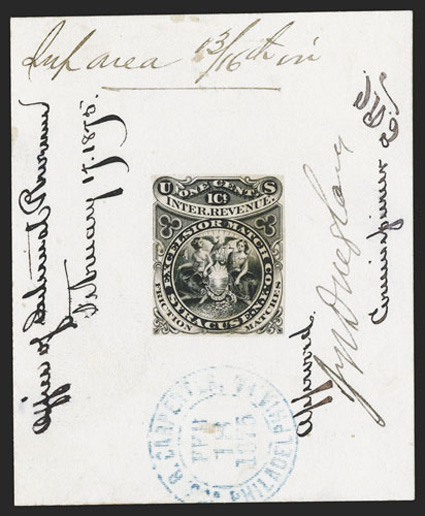 Inf area 13/16th in
Office of Internal Revenue
February 17. 1875.
U ONE CENT S
1Ct
INTER. REVENUE.
EXCELSIOR MATCH CO.
SYRACUSE N.Y.
FRICTION MATCHES
Approved.
J W Douglass
Commissioner
CARPENTER
FEB
18
1875
PHILADELPHIA